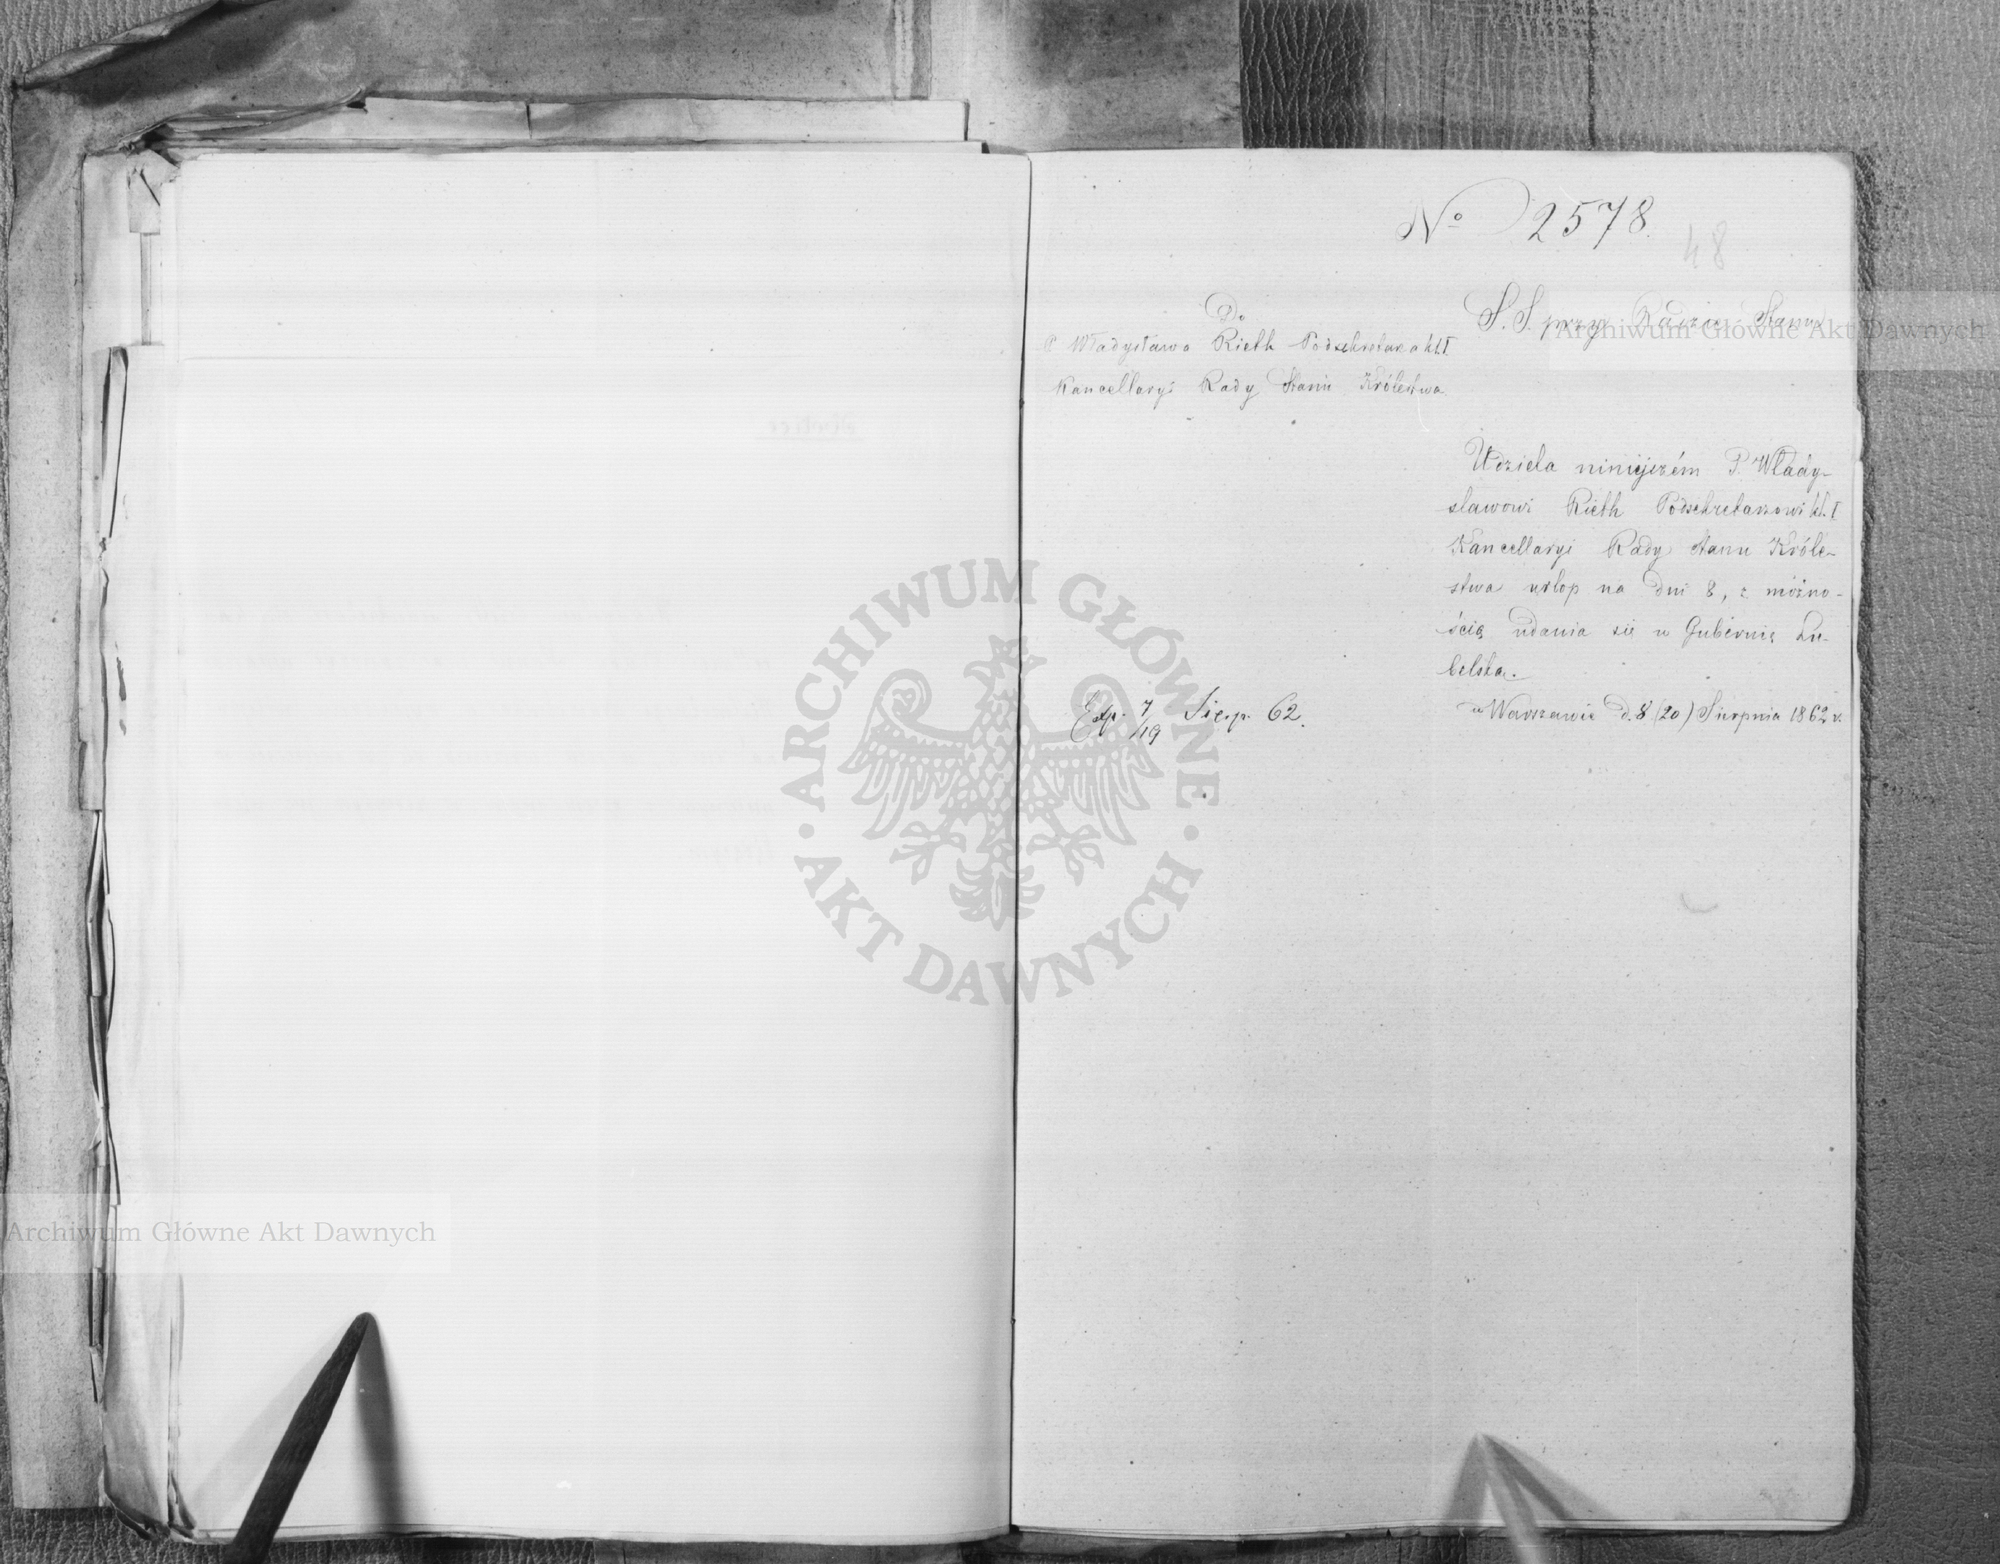 No 2578.
48
S. S. przy Radzie Stanu
Do
P. Władysława Rieth Podsekretarza kl. I.
Kancellaryi Rady Stanu Królestwa
Udziela niniejszém P. Włady-
sławowi Rieth Podsekretarzowi kl. I
Kancellaryi Rady Stanu Króle-
stwa urlop na dni 8, z możno-
ścią udania się w Gubernię Lu-
belską.
w Warszawie d. 8 (20) Sierpnia 1862 r.
Exp. 7/19 Sierp. 62.
Archiwum Główne Akt Dawnych
ARCHIWUM GŁÓWNE
AKT DAWNYCH
Archiwum Główne Akt Dawnych